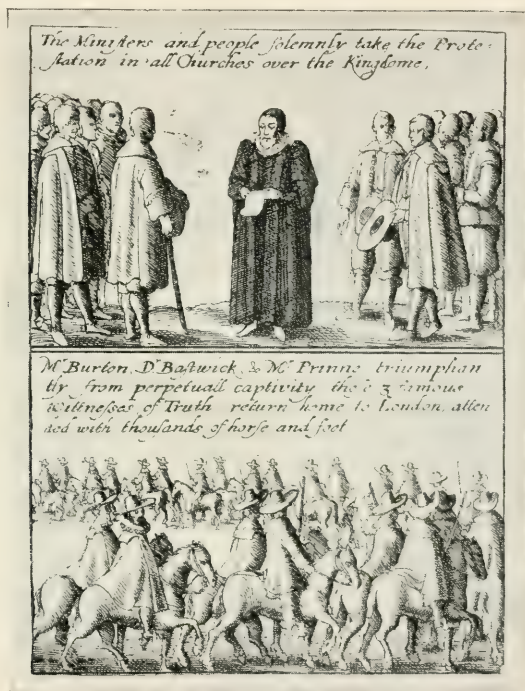 The Ministers and people solemnly take the Prote-
station in all Churches over the Kingdome,
Mr Burton, Dr Bastwick, & Mr Prinne triumphan
tly from perpetuall captivity these 3 famous
Wittnesses of Truth return home to London, atten
ded with thousands of horse and foot